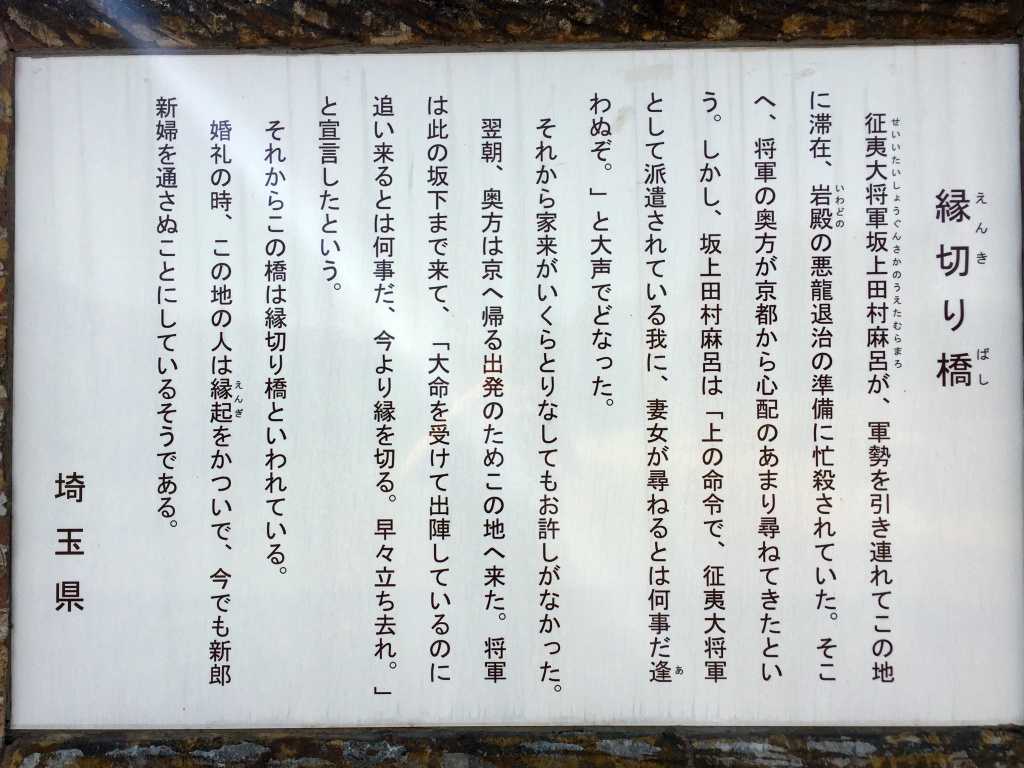 縁切り橋
えんき
ばし
征夷大将軍坂上田村麻呂が、軍勢を引き連れてこの地
せいいたいしょうぐんさかのうえたむらまろ
に滞在、岩殿の悪龍退治の準備に忙殺されていた。そこ
いわどの
へ、将軍の奥方が京都から心配のあまり尋ねてきたとい
う。しかし、坂上田村麻呂は「上の命令で、征夷大将軍
として派遣されている我に、妻女が尋ねるとは何事だ逢
あ
わぬぞ。」と大声でどなった。
それから家来がいくらとりなしてもお許しがなかった。
翌朝、奥方は京へ帰る出発のためこの地へ来た。将軍
は此の坂下まで来て、「大命を受けて出陣しているのに
追い来るとは何事だ、今より縁を切る。早々立ち去れ。」
と宣言したという。
それからこの橋は縁切り橋といわれている。
婚礼の時、この地の人は縁起をかついで、今でも新郎
えんぎ
新婦を通さぬことにしているそうである。
埼玉県